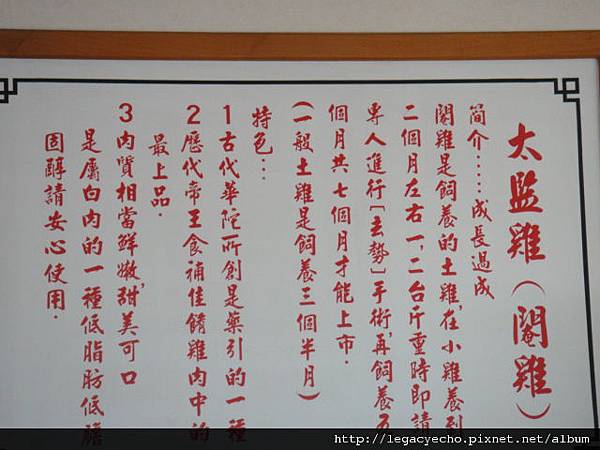 太監雞(閹雞)
簡介.....成長過成
閹雞是飼養的土雞,在小雞養到
二個月左右一,二台斤重時即請
專人進行〔去勢〕手術,再飼養五
個月共七個月才能上市.
(一般土雞是飼養三個半月)
特色...
1古代華陀所創是藥引的一種
2歷代帝王食補佳餚雞肉中的
最上品.
3肉質相當鮮嫩,甜美可口
是屬白肉的一種低脂肪低膽
固醇請安心使用.
http://legacyecho.pixnet.net/album